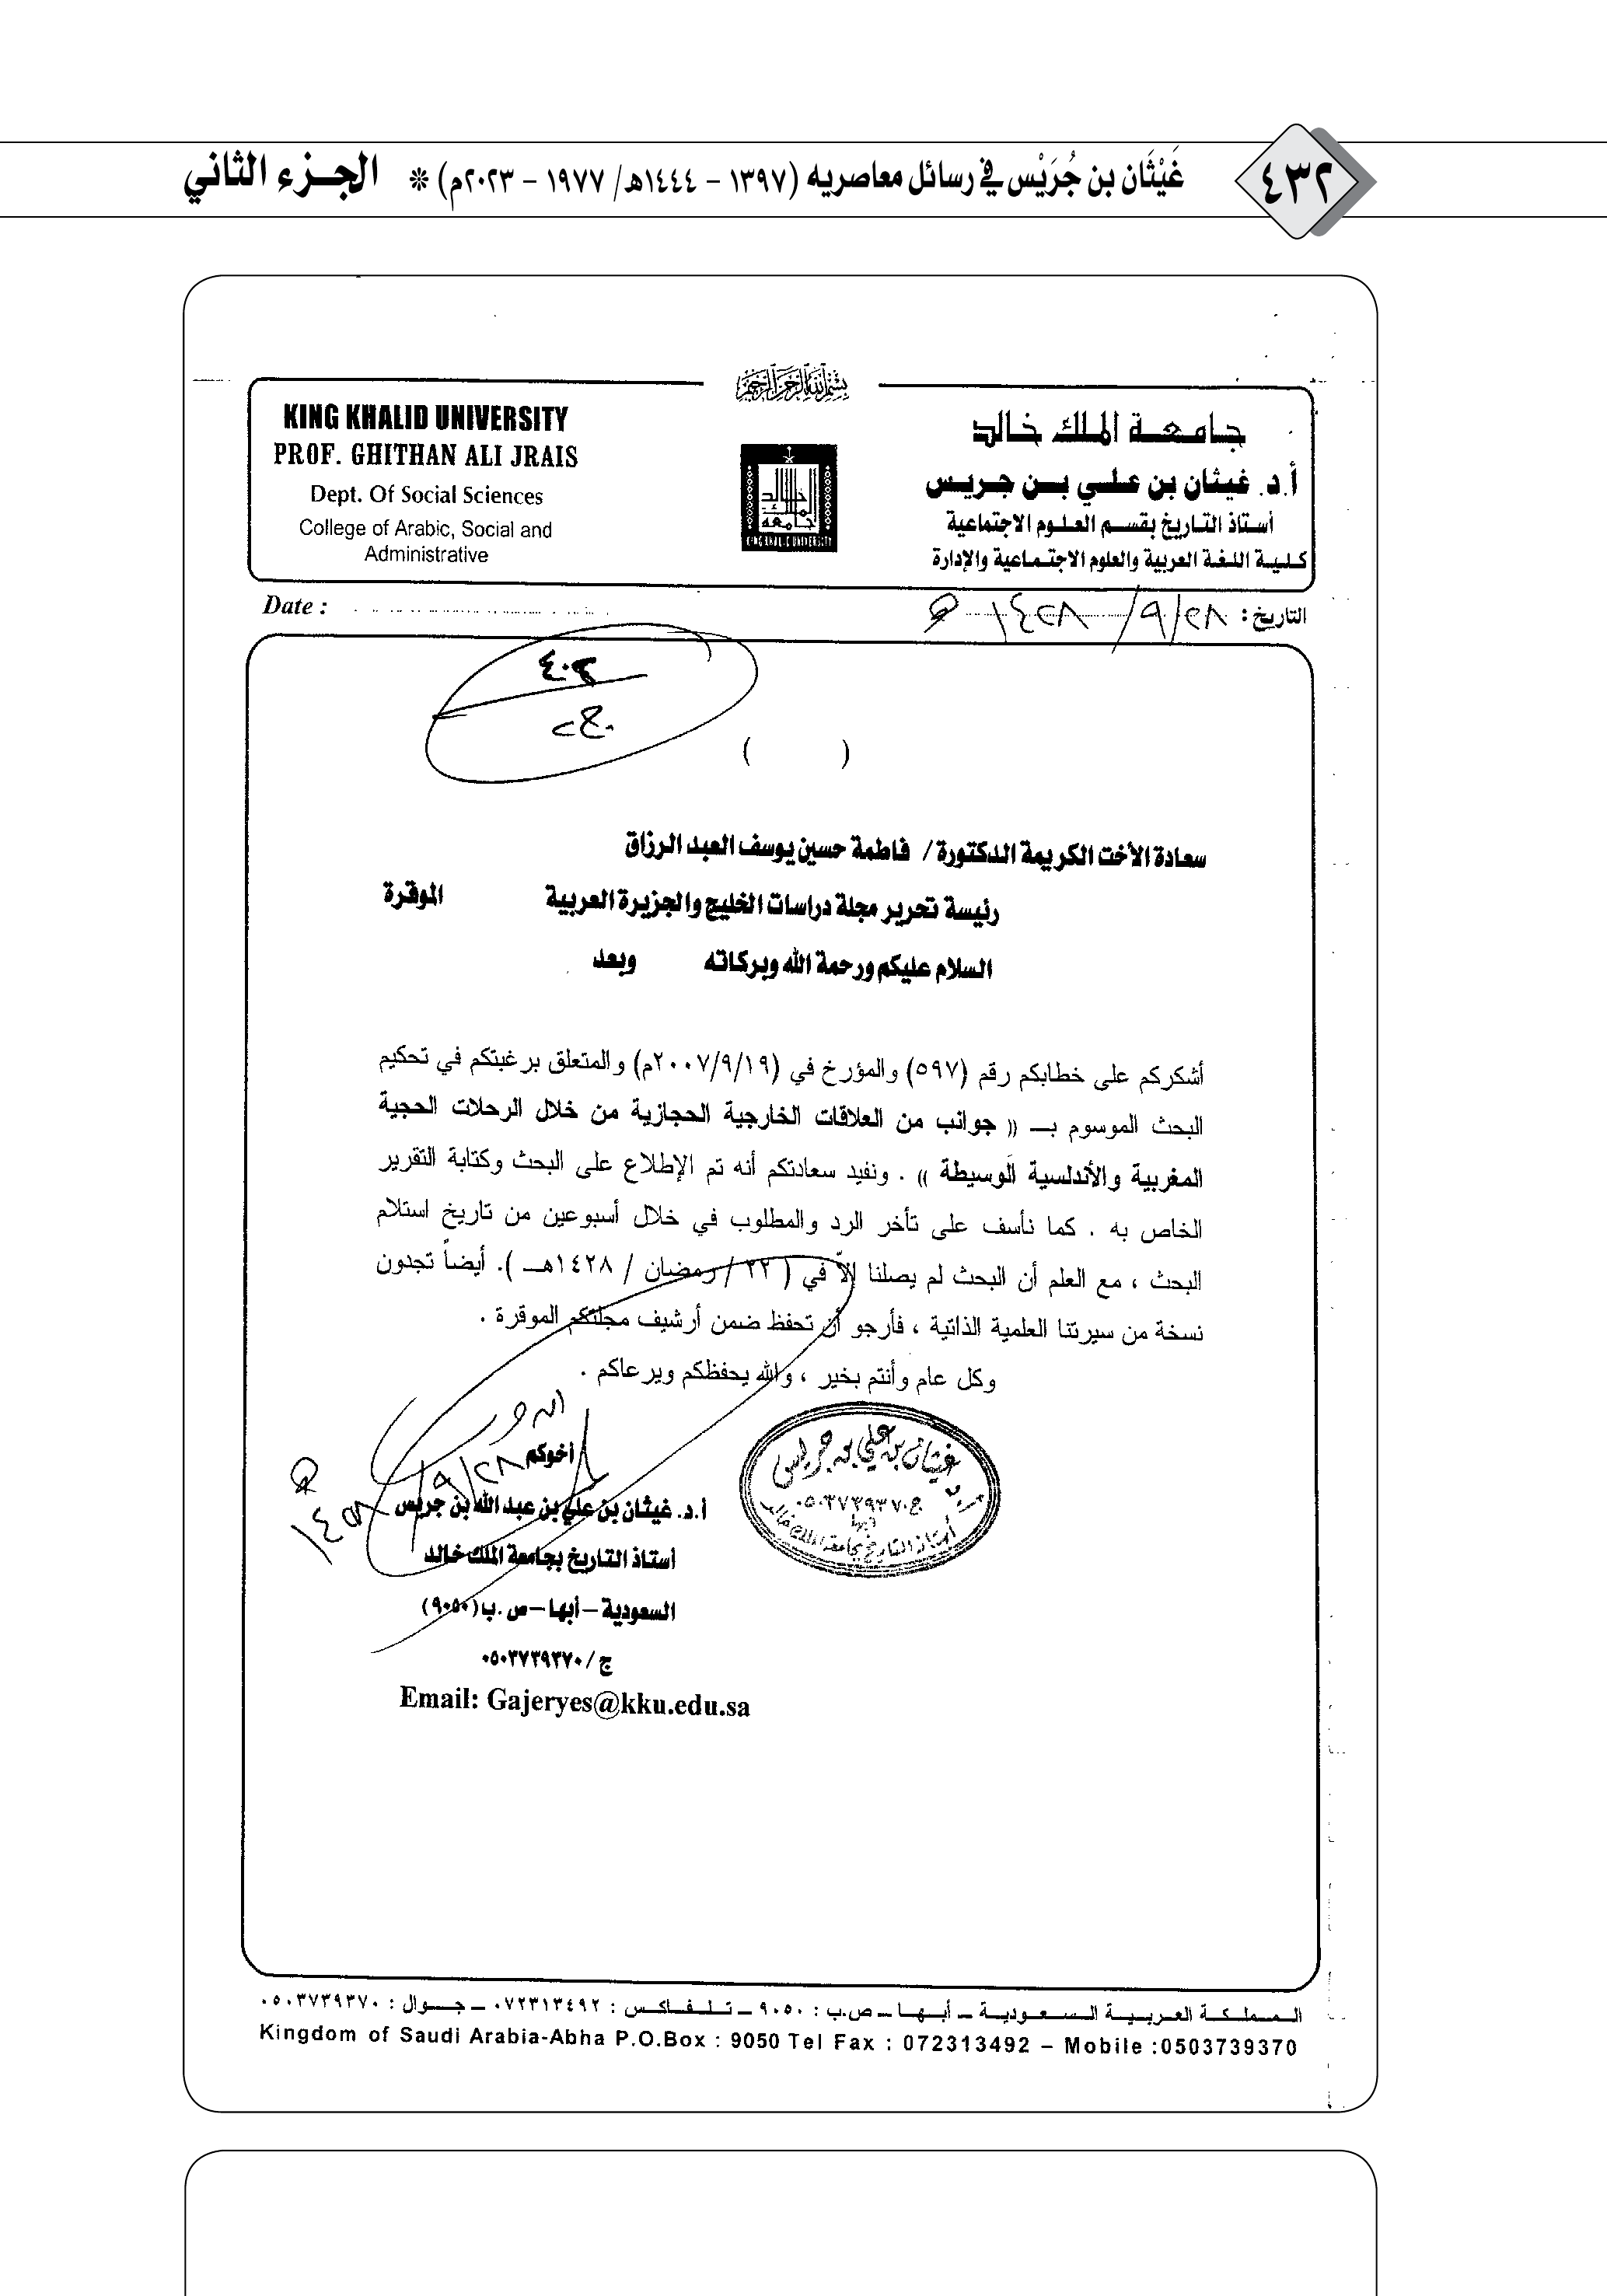 ٤٣٢
غَيْثَان بن جُرَيْس في رسائل معاصريه (١٣٩٧ - ١٤٤٤هـ/ ١٩٧٧ - ٢٠٢٣م) * الجزء الثاني
بسم الله الرحمن الرحيم
جامعة الملك خالد
أ.د. غيثان بن علي بن جريس
أستاذ التاريخ بقسم العلوم الاجتماعية
كلية اللغة العربية والعلوم الاجتماعية والإدارة
KING KHALID UNIVERSITY
PROF. GHITHAN ALI JRAIS
Dept. Of Social Sciences
College of Arabic, Social and
Administrative
جامعة الملك خالد
KING KHALID UNIVERSITY
التاريخ : ٢٨/٩/١٤٢٨هـ
Date :
( )
سعادة الأخت الكريمة الدكتورة / فاطمة حسين يوسف العبد الرزاق
رئيسة تحرير مجلة دراسات الخليج والجزيرة العربية الموقرة
السلام عليكم ورحمة الله وبركاته وبعد
أشكركم على خطابكم رقم (٥٩٧) والمؤرخ في (٢٠٠٧/٩/١٩م) والمتعلق برغبتكم في تحكيم
البحث الموسوم بـ (( جوانب من العلاقات الخارجية الحجازية من خلال الرحلات الحجية
المغربية والأندلسية الوسيطة )) . ونفيد سعادتكم أنه تم الإطلاع على البحث وكتابة التقرير
الخاص به . كما نأسف على تأخر الرد والمطلوب في خلال أسبوعين من تاريخ استلام
البحث ، مع العلم أن البحث لم يصلنا إلاّ في ( ٢٢ / رمضان / ١٤٢٨هـ ). أيضاً تجدون
نسخة من سيرتنا العلمية الذاتية ، فأرجو أن تحفظ ضمن أرشيف مجلتكم الموقرة .
وكل عام وأنتم بخير ، والله يحفظكم ويرعاكم .
أخوكم
٢٨/٩/١٤٢٨هـ
أ.د. غيثان بن علي بن عبد الله بن جريس
أستاذ التاريخ بجامعة الملك خالد
السعودية – أبها – ص.ب (٩٠٥٠)
ج / ٠٥٠٣٧٣٩٣٧٠
Email: Gajeryes@kku.edu.sa
أ.د غيثان بن علي بن جريس
ج ٠٥٠٣٧٣٩٣٧٠
أبها
أستاذ التاريخ بجامعة الملك خالد
المملكة العربية السعودية – أبها – ص.ب : ٩٠٥٠ – تلفاكس : ٠٧٢٣١٣٤٩٢ – جوال : ٠٥٠٣٧٣٩٣٧٠
Kingdom of Saudi Arabia-Abha P.O.Box : 9050 Tel Fax : 072313492 – Mobile :0503739370